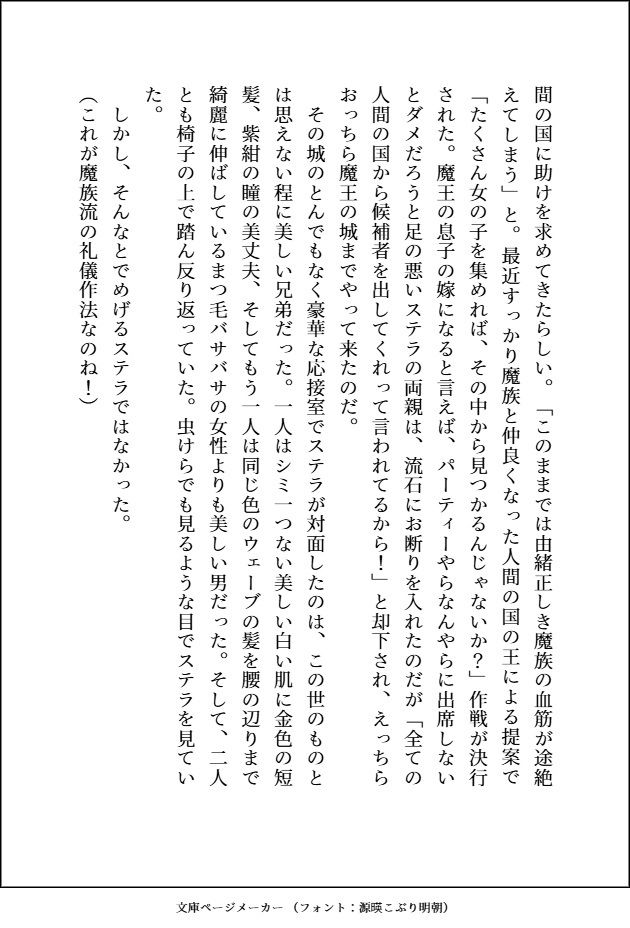 間の国に助けを求めてきたらしい。「このままでは由緒正しき魔族の血筋が途絶
えてしまう」と。最近すっかり魔族と仲良くなった人間の国の王による提案で
「たくさん女の子を集めれば、その中から見つかるんじゃないか？」作戦が決行
された。魔王の息子の嫁になると言えば、パーティーやらなんやらに出席しない
とダメだろうと足の悪いステラの両親は、流石にお断りを入れたのだが「全ての
人間の国から候補者を出してくれって言われてるから！」と却下され、えっちら
おっちら魔王の城までやって来たのだ。
　その城のとんでもなく豪華な応接室でステラが対面したのは、この世のものと
は思えない程に美しい兄弟だった。一人はシミ一つない美しい白い肌に金色の短
髪、紫紺の瞳の美丈夫、そしてもう一人は同じ色のウェーブの髪を腰の辺りまで
綺麗に伸ばしているまつ毛バサバサの女性よりも美しい男だった。そして、二人
とも椅子の上で踏ん反り返っていた。虫けらでも見るような目でステラを見てい
た。
　しかし、そんなとでめげるステラではなかった。
（これが魔族流の礼儀作法なのね！）
文庫ページメーカー（フォント：源暎こぶり明朝）